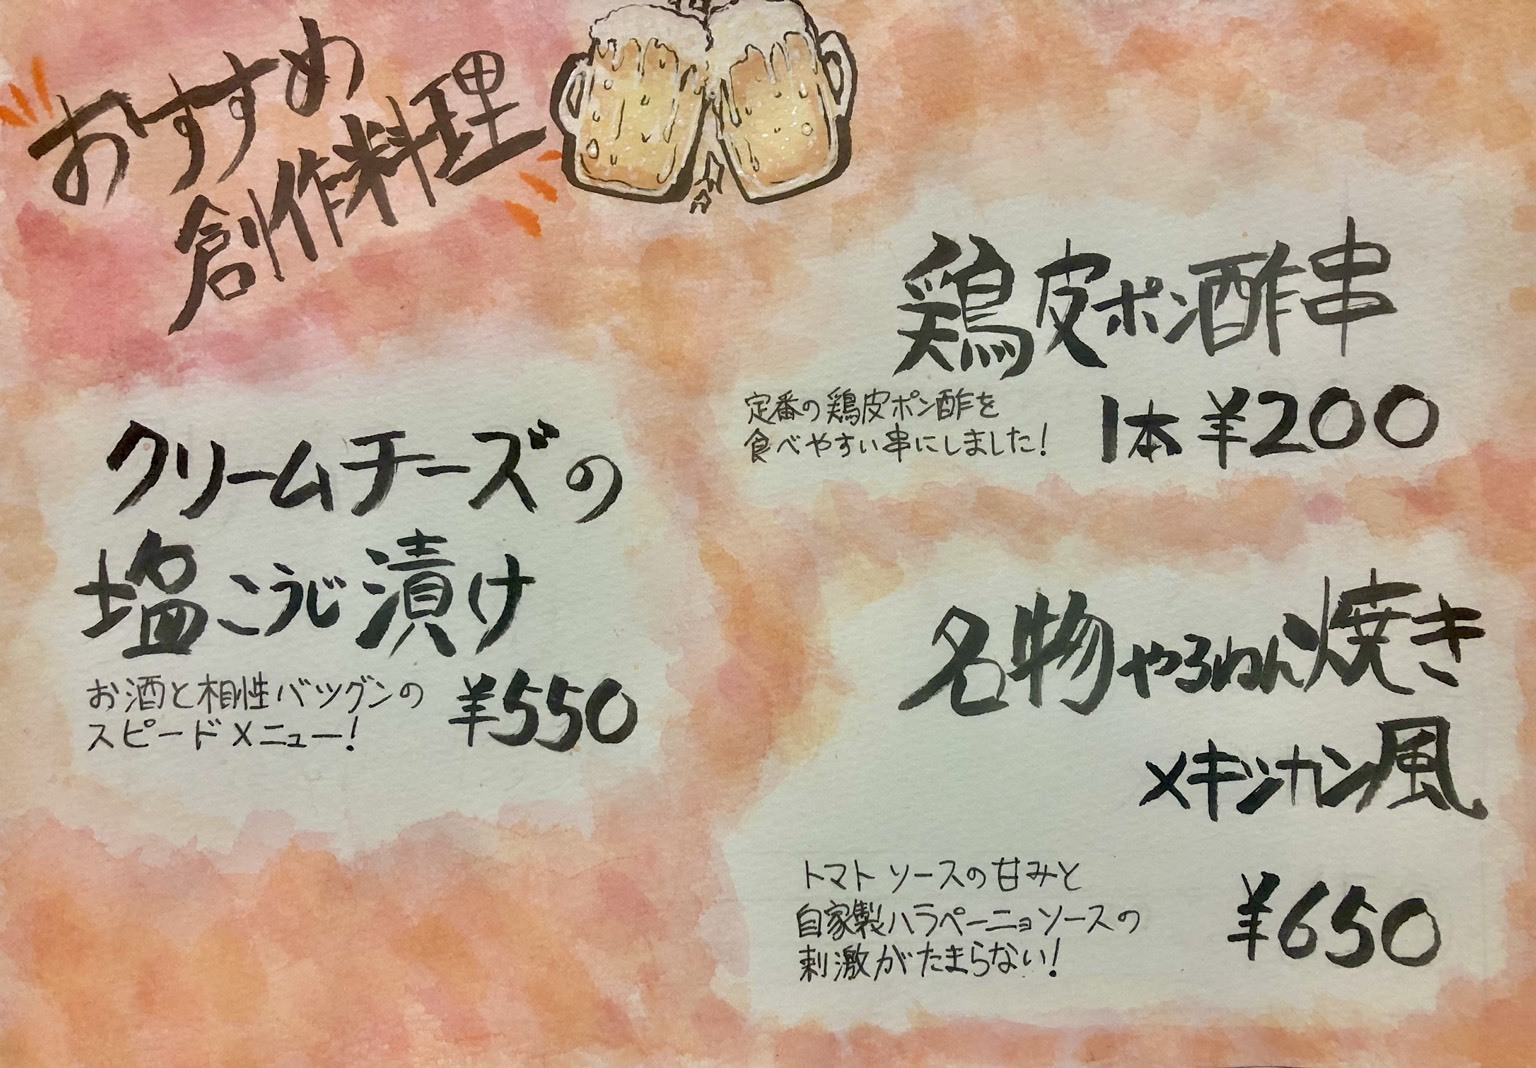 おすすめ
創作料理
クリームチーズの
塩こうじ漬け
お酒と相性バツグンの
スピードメニュー!
¥550
鶏皮ポン酢串
定番の鶏皮ポン酢を
食べやすい串にしました!
1本 ¥200
名物やるねん焼き
メキシカン風
トマトソースの甘みと
自家製ハラペーニョソースの
刺激がたまらない!
¥650